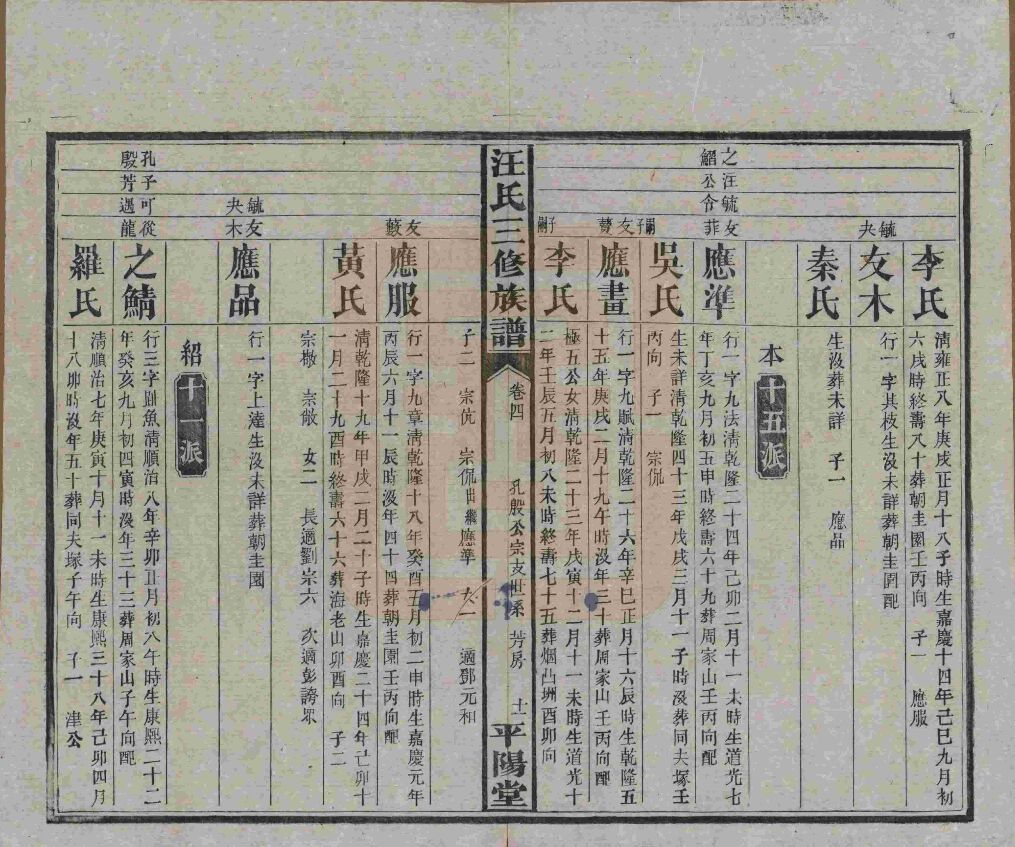 李氏
清雍正八年庚戌正月十八子時生嘉慶十四年己巳九月初
六戌時終壽八十葬朝圭園壬丙向 子一 應服
毓夬
友木
行一字其枝生沒未詳葬朝圭園配
秦氏
生沒葬未詳 子一 應品
本十五派
之鰼
汪公
毓令
友菲
應準
行一字九法清乾隆二十四年己卯二月十一未時生道光七
年丁亥九月初五申時終壽六十九葬周家山壬丙向配
吳氏
生未詳清乾隆四十三年戊戌三月十一子時沒葬同夫塚壬
丙向 子一 宗侃
嗣子
友
應畫
行一字九賦清乾隆二十六年辛巳正月十六辰時生乾隆五
十五年庚戌二月十九午時沒年三十葬周家山壬丙向配
子嗣
李氏
極五公女清乾隆二十三年戊寅十二月十一未時生道光十
二年壬辰五月初八未時終壽七十五葬烟凸坳酉卯向
汪氏三修族譜
卷四
孔殷公宗支世系 芳房
十一
平陽堂
子二 宗伉 宗侃出繼應準 女一 適鄧元和
友
應服
行一字九章清乾隆十八年癸酉五月初二申時生嘉慶元年
丙辰六月十一辰時沒年四十四葬朝圭園壬丙向配
黃氏
清乾隆十九年甲戌二月二十子時生嘉慶二十四年己卯十
一月二十九酉時終壽六十六葬海老山卯酉向 子二
宗檄 宗敞 女二 長適劉宗六 次適彭誇眾
毓夬
友木
應品
行一字上達生沒未詳葬朝圭園
紹十一派
孔殷
子芳
可遇
從龍
之鯖
行三字趾魚清順治八年辛卯正月初八午時生康熙二十二
年癸亥九月初四寅時沒年三十三葬周家山子午向配
羅氏
清順治七年庚寅十月十一未時生康熙三十八年己卯四月
十八卯時沒年五十葬同夫塚子午向 子一 津公